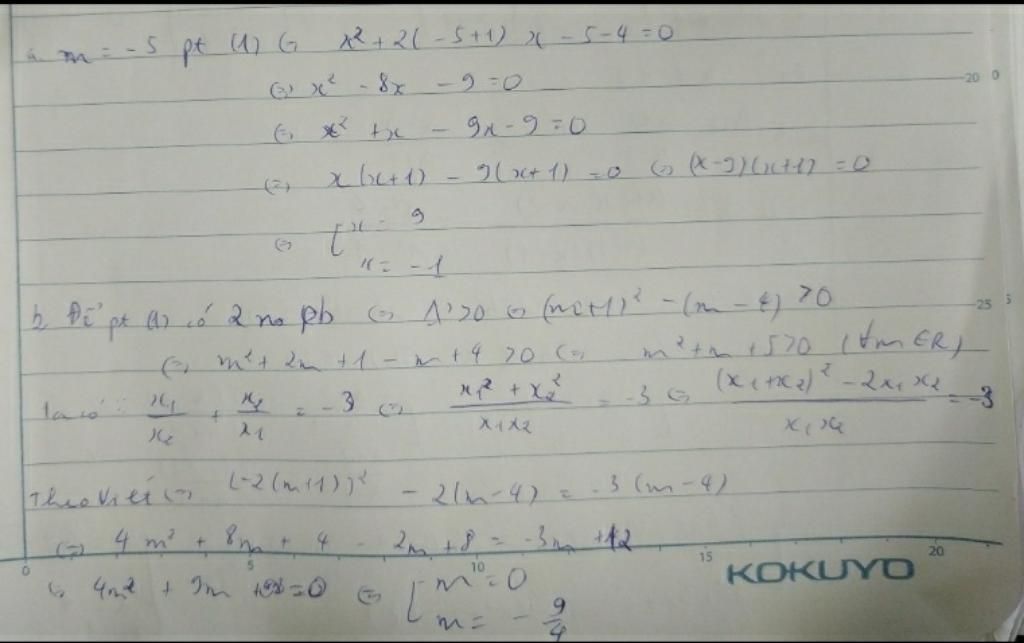 a. m = -5 pt (1) (=) x² + 2(-5+1) x - 5 - 4 = 0
(=) x² - 8x - 9 = 0
20 0
(=) x² + x - 9x - 9 = 0
(=) x(x+1) - 9(x+1) = 0 (=) (x-9)(x+1) = 0
(=) [ x = 9
x = -1
b, Để pt (1) có 2 no pb (=) Δ' > 0 (=) (m+1)² - (m - 4) > 0
25 5
(=) m² + 2m + 1 - m + 4 > 0 (=) m² + m + 5 > 0 (∀m ∈ R)
Ta có: x₁/x₂ + x₂/x₁ = -3 (=) (x₁² + x₂²)/(x₁x₂) = -3 (=) ((x₁+x₂)² - 2x₁x₂)/(x₁x₂) = -3
Theo Viét (=) (-2(m+1))² - 2(m-4) = -3(m-4)
(=) 4m² + 8m + 4 - 2m + 8 = -3m + 12
0 5 10 15 20
KOKUYO
(=) 4m² + 9m = 0 (=) [ m = 0
m = - 9/4